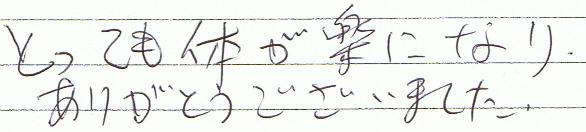 とっても体が楽になり.
ありがとうございました.